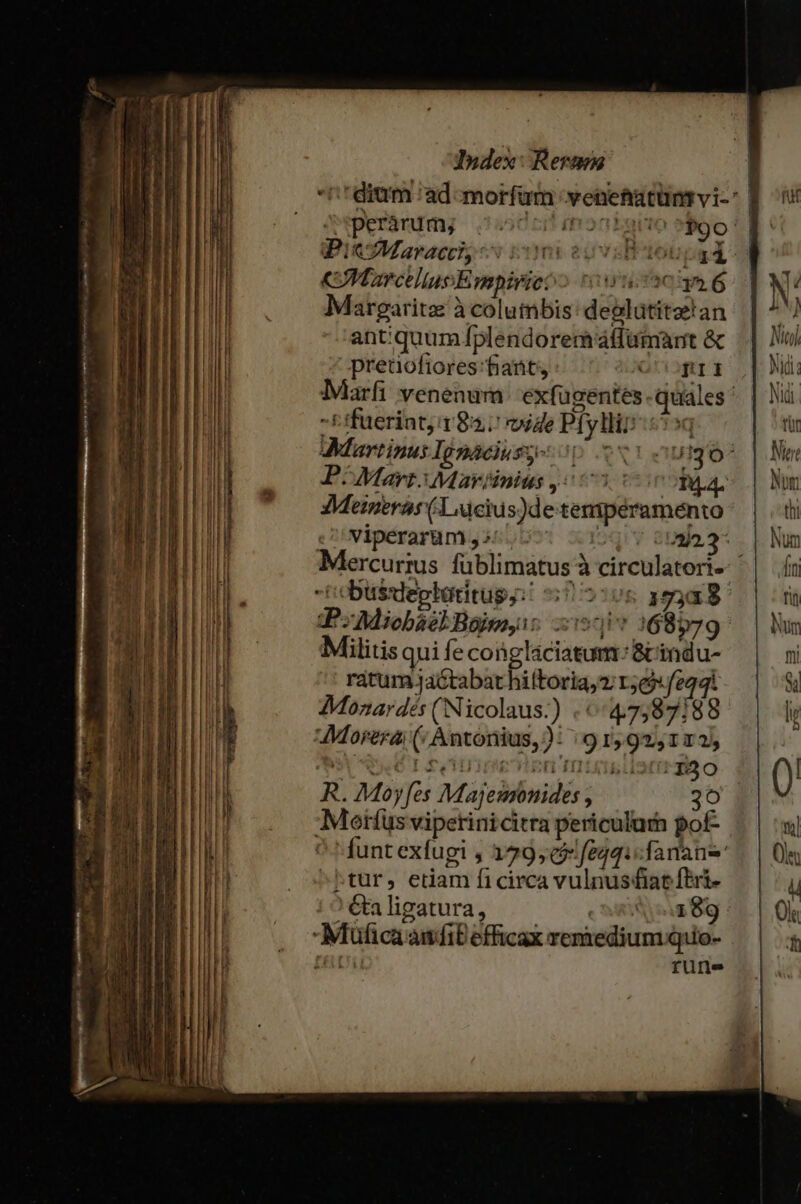 Index Rerum
dium ad morſum venenatum vi-
perarum, 190
P. Maracci,
Marcellus Empiric. 126
Margaritæ à columbis deglutitæ an
antiquum ſplendorem aſſumant &
pretioſiores fiant, 111
Marſi venenum exſugentes quales
fuerint, 182. vide Pſylli
Martinus Ignacius, 130
P. Mart. Martinius, 114.
Meineras (Lucius) de temperamento
viperarum, 23
Mercurius ſublimatus à circulatori-
bus deglutitus,
P. Michäel Bojm, 68, 79
Militis qui ſe conglaciatum & indu-
ratum jactabat hiſtoria, 21, & ſeqq.
Monardes (Nicolaus.) 47, 87, 88
Morera (Antonius,) 91, 92, 112,
130
R. Moyſes Majemonides, 30
Morſus viperini citra periculum poſ-
ſunt exſugi, 179, & ſeqq. ſanan-
tur, etiam ſi circa vulnus fiat ſtri-
cta ligatura, 189
Muſica an ſit efficax remedium quo-
rum-